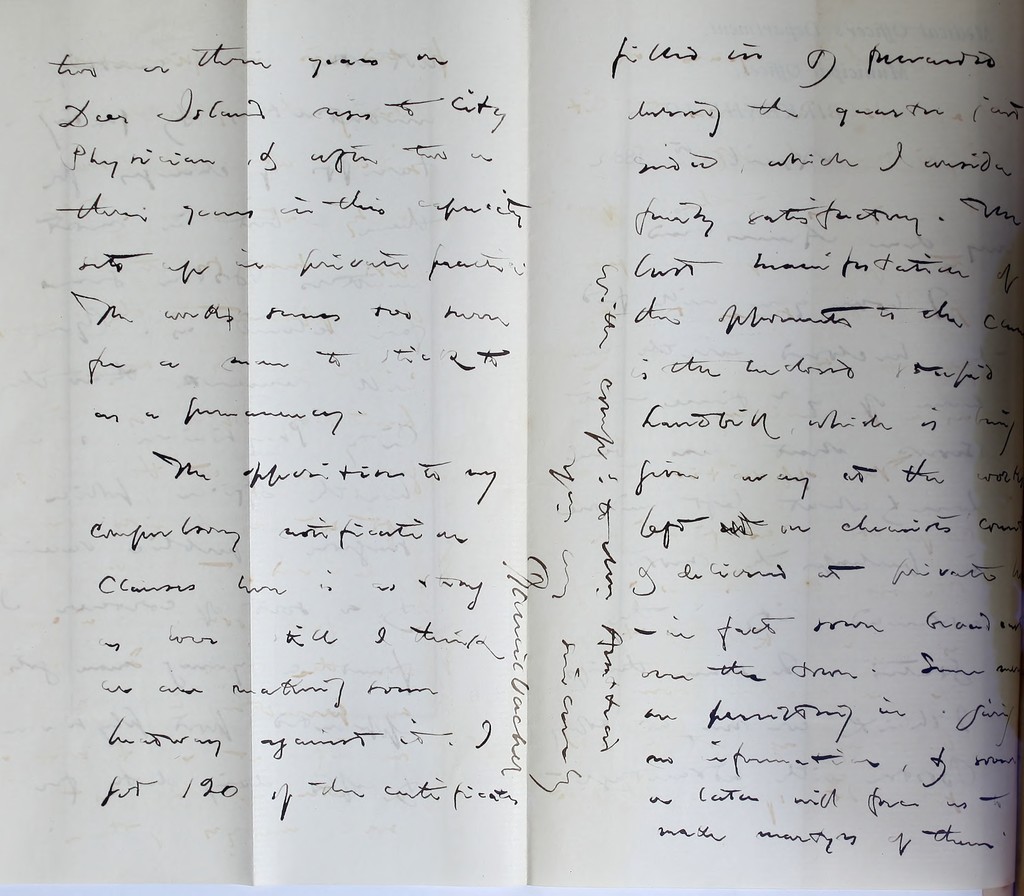 two or three years on
Deer Island rises to City
Physician, & after two or
three years in this capacity
sets up in private practice
The work seems too severe
for a man to stick to
as a permanency.
The opposition to my
compulsory notification
Clauses here is as strong
as ever still I think
we are making some
headway against it. I
got 120 of the certificates
filled in & forwarded
during the quarter just
ended, which I consider
fairly satisfactory. The
last manifestation of
the opponents to the
is the enclosed stupid
handbill, which is being
given away at the works
left on chemists
& delivered at private
in fact sown
over the town. Some
are persisting in giving
no information, & sooner
or later will force us to
make martyrs of them
with
Yours very sincerely